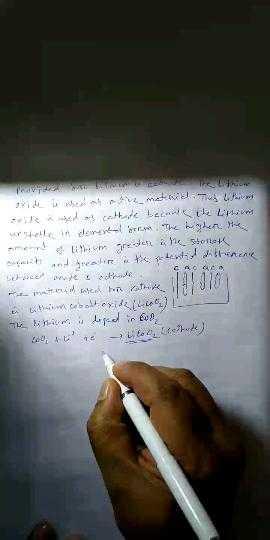 Provided has lithium is cathode. The lithium
oxide is used as active material. This lithium
oxide is used as cathode because the lithium
unstable in elemental form. The higher the
amount of lithium greater is the storage
capacity and greater is the potential difference
between anode & cathode.
C A C A C A
The material used for cathode
is lithium cobalt oxide (LiCoO2)
The lithium is doped in CoO2
CoO2 + Li+ + e- → LiCoO2 (cathode)